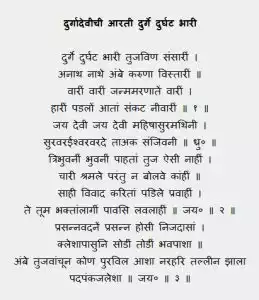 दुर्गादेवीची आरती दुर्गे दुर्घट भारी
दुर्गे दुर्घट भारी तुजविण संसारीं ।
अनाथ नाथे अंबे करुणा विस्तारीं ॥
वारीं वारीं जन्ममरणाते वारीं ।
हारीं पडलों आतां संकट नीवारीं ॥ १ ॥
जय देवी जय देवी महिषासुरमथिनी ।
सुरवरईश्वरवरदे ताअक संजिवनी ॥ ध्रु० ॥
त्रिभुवनीं भुवनी पाहतां तुज ऐसी नाहीं ।
चारी श्रमले परंतु न बोलवे कांहीं ॥
साही विवाद करितां पडिले प्रवाहीं ।
ते तूम भक्तांलागीं पावसि लवलाहीं ॥ जय० ॥ २ ॥
प्रसन्नवदनें प्रसन्न होसी निजदासां ।
क्लेशापासुनि सोडीं तोडीं भवपाशा ॥
अंबे तुजवांचून कोण पुरविल आशा नरहरि तल्लीन झाला
पदपंकजलेशा ॥ जय० ॥ ३ ॥